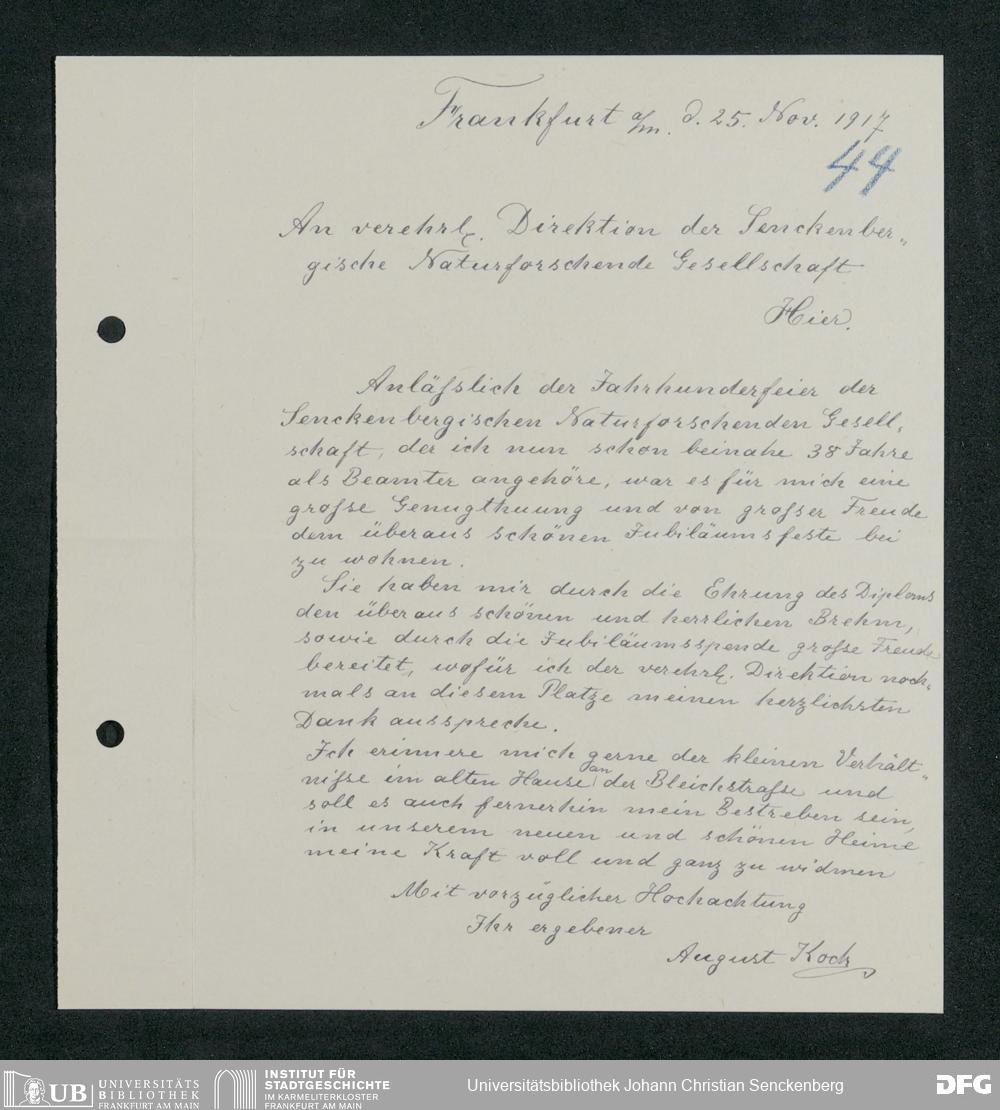 Frankfurt a/m. d. 25. Nov. 1917
44
An verehrl. Direktion der Senckenber„
gische Naturforschende Gesellschaft
Hier.
Anläfslich der Jahrhunderfeier der
Senckenbergischen Naturforschenden Gesell„
schaft, der ich nun schon beinahe 38 Jahre
als Beamter angehöre, war es für mich eine
grofse Genugthuung und von grofser Freude
dem überaus schönen Jubiläumsfeste bei
zu wohnen.
Sie haben mir durch die Ehrung des Diploms
den überaus schönen und herrlichen Brehm,
sowie durch die Jubiläumsspende grofse Freude
bereitet, wofür ich der verehrl. Direktion noch„
mals an diesem Platze meinen herzlichsten
Dank ausspreche.
Ich erinnere mich gerne der kleinen Verhält„
nifse im alten Hause an der Bleichstrafse und
soll es auch fernerhin mein Bestreben sein,
in unserem neuen und schönen Heime
meine Kraft voll und ganz zu widmen
Mit vorzüglicher Hochachtung
Ihr ergebener
August Koch
UB UNIVERSITÄTS
BIBLIOTHEK
FRANKFURT AM MAIN
INSTITUT FÜR
STADTGESCHICHTE
IM KARMELITERKLOSTER
FRANKFURT AM MAIN
Universitätsbibliothek Johann Christian Senckenberg
DFG